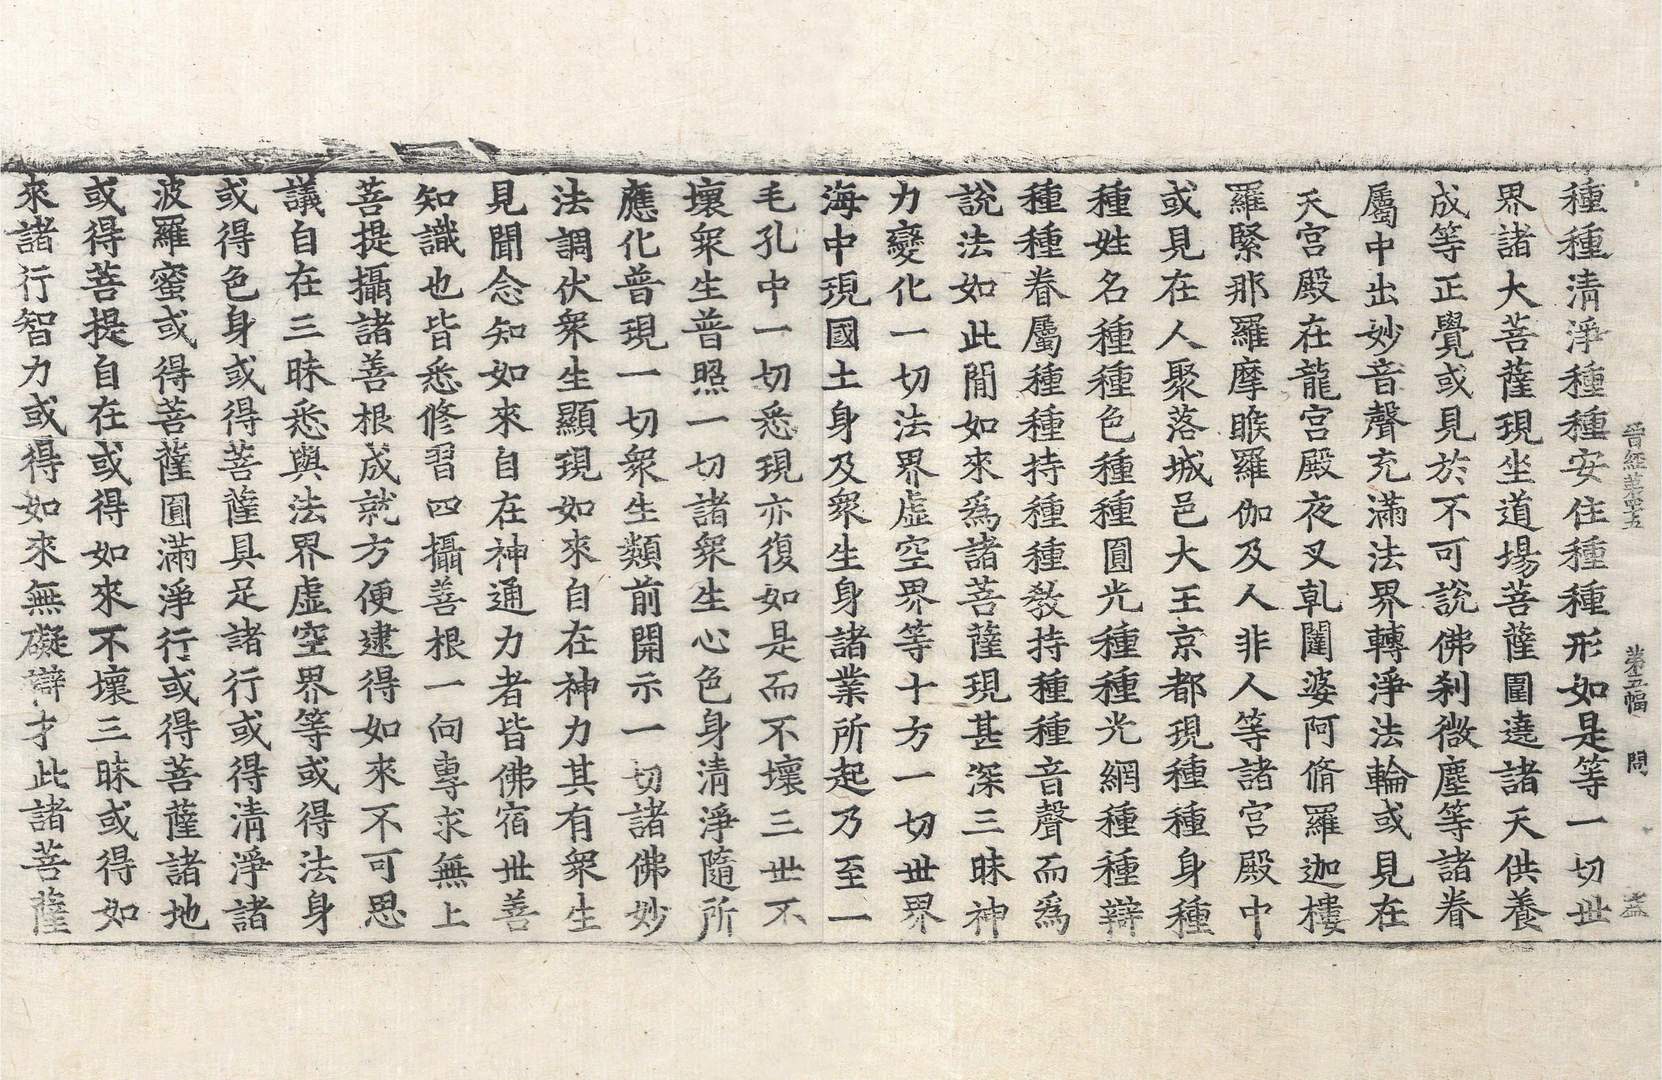 晉經蓽第五 第五幅 問 盇
種種清淨種種安住種種形如是等一切世
界諸大菩薩現坐道場菩薩圍遶諸天供養
成等正覺或見於不可說佛刹微塵等諸眷
屬中出妙音聲充滿法界轉淨法輪或見在
天宮殿在龍宮殿夜叉乹闥婆阿脩羅迦樓
羅緊那羅摩睺羅伽及人非人等諸宮殿中
或見在人聚落城邑大王京都現種種身種
種姓名種種色種種圓光種種光網種種辯
種種眷屬種種持種種教持種種音聲而爲
說法如此閒如來爲諸菩薩現甚深三昧神
力變化一切法界虛空界等十方一切世界
海中現國土身及衆生身諸業所起乃至一
毛孔中一切悉現亦復如是而不壞三世不
壞衆生普照一切諸衆生心色身清淨隨所
應化普現一切衆生類前開示一切諸佛妙
法調伏衆生顯現如來自在神力其有衆生
見聞念知如來自在神通力者皆佛宿世善
知識也皆悉修習四攝善根一向專求無上
菩提攝諸善根成就方便逮得如來不可思
議自在三昧悉與法界虛空界等或得法身
或得色身或得菩薩具足諸行或得清淨諸
波羅蜜或得菩薩圓滿淨行或得菩薩諸地
或得菩提自在或得如來不壞三昧或得如
來諸行智力或得如來無礙辯才此諸菩薩